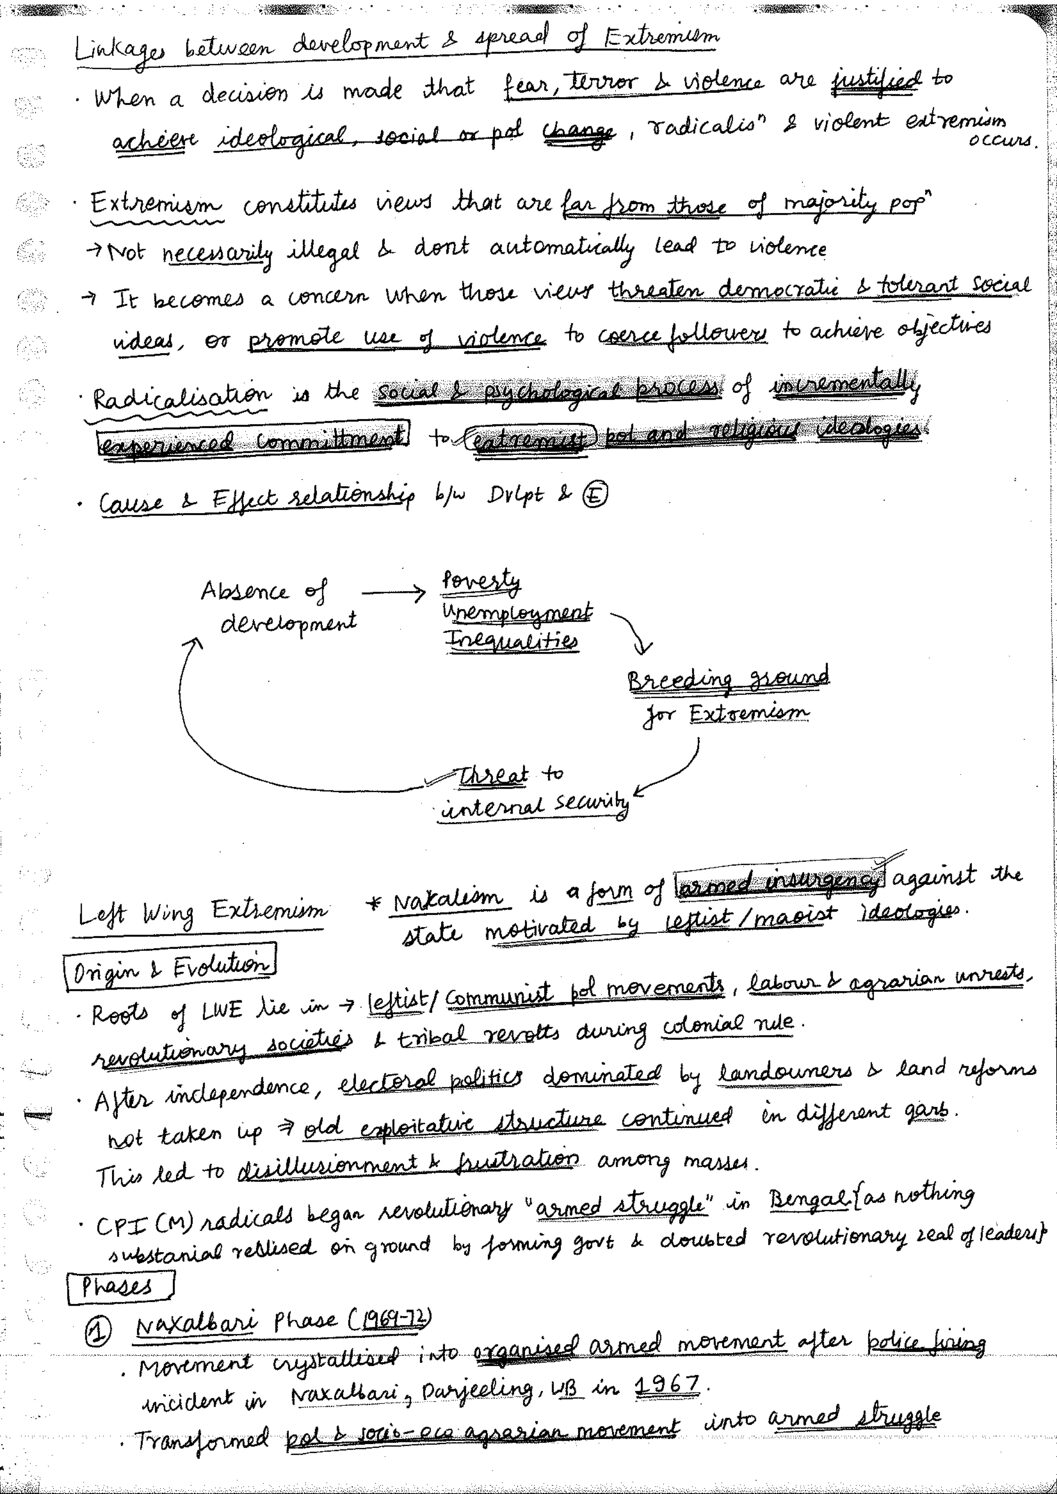 Linkages between development & spread of Extremism
· When a decision is made that fear, terror & violence are justified to
achieve ideological, social or pol change, radicalisⁿ & violent extremism
occurs.
· Extremism constitutes views that are far from those of majority popⁿ
→ Not necessarily illegal & dont automatically lead to violence
→ It becomes a concern when those views threaten democratic & tolerant social
ideas, or promote use of violence to coerce followers to achieve objectives
· Radicalisation is the social & psychological process of incrementally
experienced committment to extremist pol and religious ideologies.
· Cause & Effect relationship b/w Dvlpt & Ⓔ
Absence of → Poverty
development Unemployment
Inequalities
Breeding ground
for Extremism
Threat to
internal security
Left Wing Extremism * Naxalism is a form of armed insurgency against the
state motivated by leftist/maoist ideologies.
Origin & Evolution
· Roots of LWE lie in → leftist/communist pol movements, labour & agrarian unrests,
revolutionary societies & tribal revolts during colonial rule.
· After independence, electoral politics dominated by landowners & land reforms
not taken up ⇒ old exploitative structure continued in different garb.
This led to disillusionment & frustration among masses.
· CPI (M) radicals began revolutionary "armed struggle" in Bengal {as nothing
substanial relised on ground by forming govt & doubted revolutionary zeal of leaders}
Phases
① Naxalbari Phase (1969-72)
· Movement crystallised into organised armed movement after police firing
incident in Naxalbari, Darjeeling, WB in 1967.
· Transformed pol & socio-eco agrarian movement into armed struggle